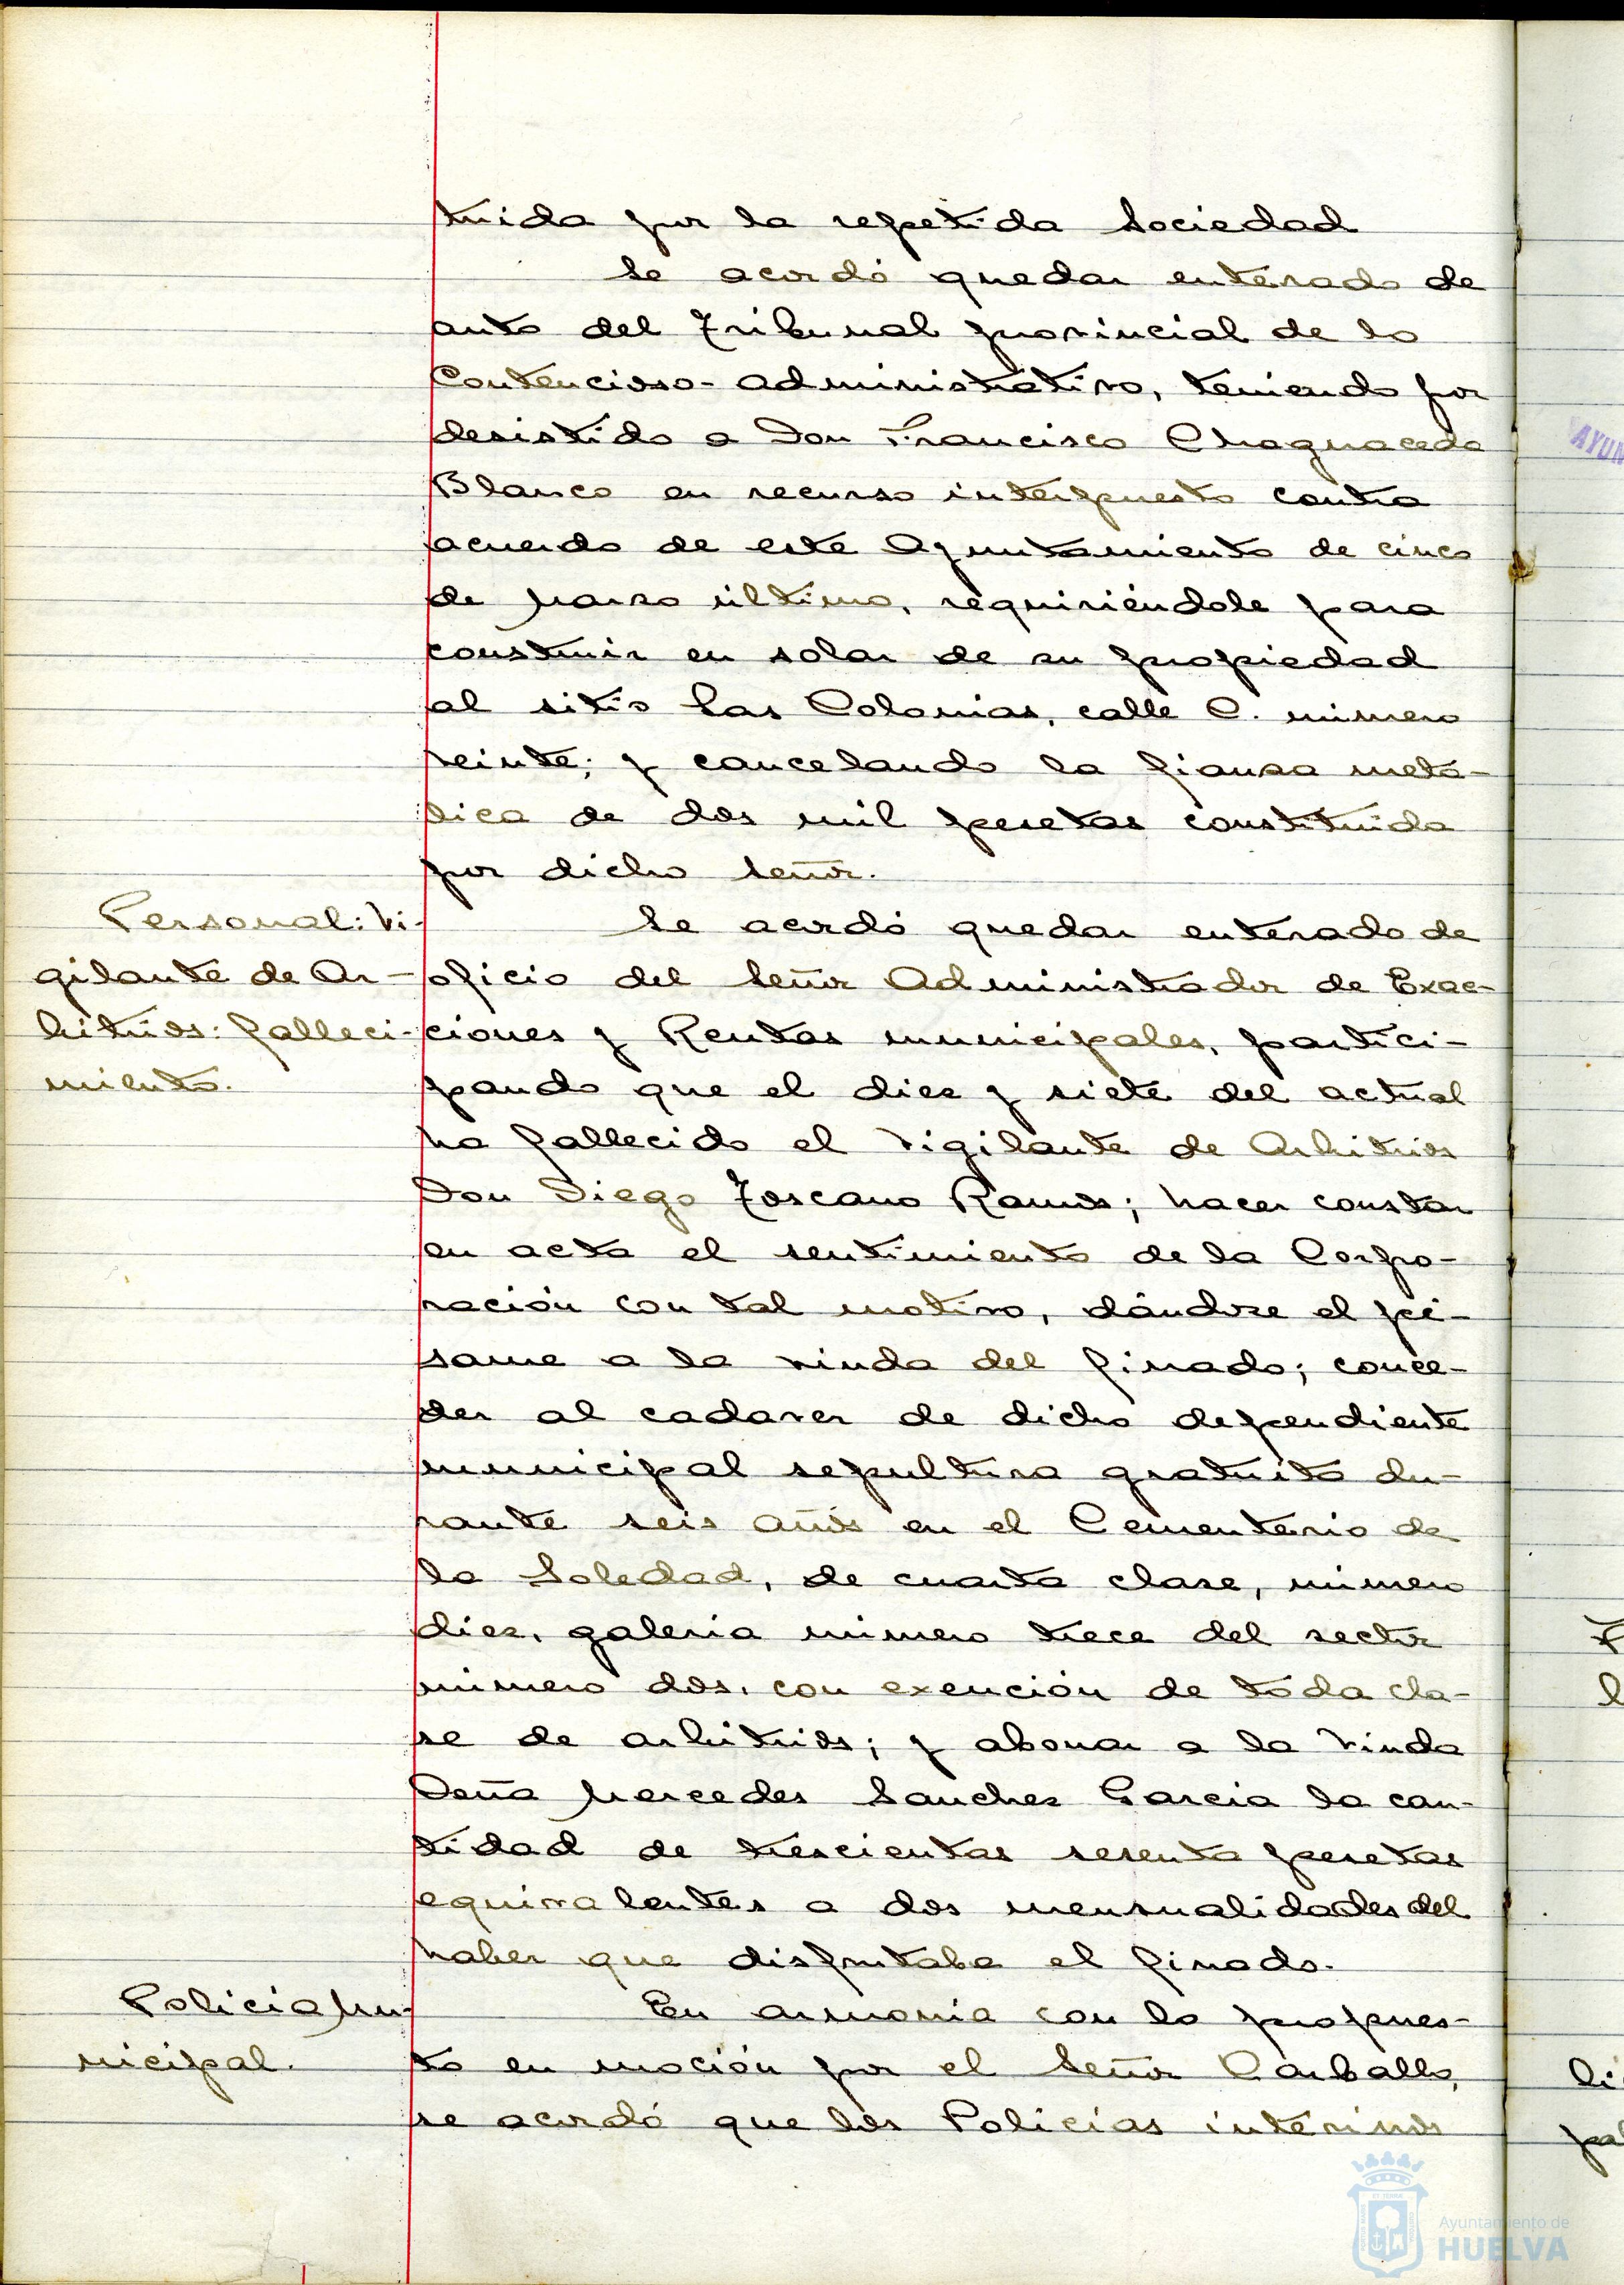 tuida por la repetida Sociedad
Se acordó quedar enterado de
auto del Tribunal provincial de lo
Contencioso-administrativo, teniendo por
desistido a Don Francisco Chaguaceda
Blanco en recurso interpuesto contra
acuerdo de este Ayuntamiento de cinco
de Marzo último, requiriéndole para
construir en solar de su propiedad
al sitio Las Colonias, calle C. número
veinte; y cancelando la fianza metá-
lica de dos mil pesetas constituida
por dicho Señor.
Personal: Vi-
gilante de Ar-
bitrios: falleci-
miento.
Se acordó quedar enterado de
oficio del Señor Administrador de Exac-
ciones y Rentas municipales, partici-
pando que el diez y siete del actual
ha fallecido el Vigilante de Arbitrios
Don Diego Toscano Ramos; hacer constar
en acta el sentimiento de la Corpo-
ración con tal motivo, dándose el pé-
same a la viuda del finado; conce-
der al cadaver de dicho dependiente
municipal sepultura gratuita du-
rante seis años en el Cementerio de
la Soledad, de cuarta clase, número
diez, galeria número trece del sector
número dos, con exención de toda cla-
se de arbitrios; y abonar a la Viuda
Doña Mercedes Sanchez Garcia la can-
tidad de trescientas sesenta pesetas
equivalentes a dos mensualidades del
haber que disfrutaba el finado.
Policia Mu-
nicipal.
En armonia con lo propues-
to en moción por el Señor Carballo,
se acordó que los Policías interinos
AYUN
Ayuntamiento de
HUELVA